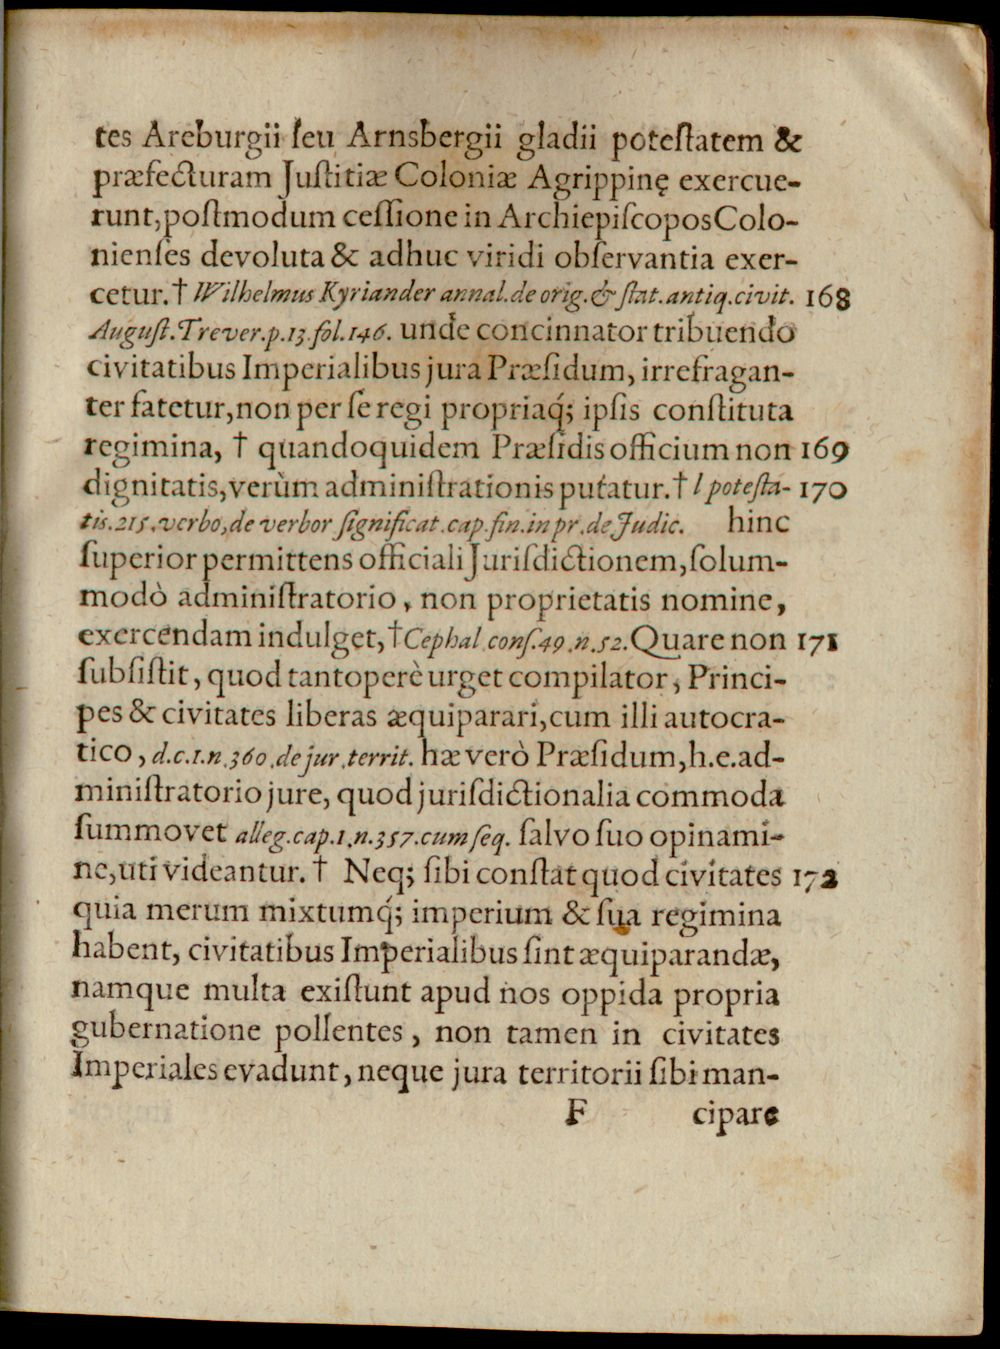 tes Areburgii ſeu Arnsbergii gladii poteſtatem &
præfecturam Juſtitiæ Coloniæ Agrippinę exercue-
runt, poſtmodum ceſſione in Archiepiſcopos Colo-
nienſes devoluta & adhuc viridi obſervantia exer-
cetur. † Wilhelmus Kyriander annal. de orig. & ſtat. antiq. civit. 168
Auguſt. Trever. p. 13. fol. 146. unde concinnator tribuendo
civitatibus Imperialibus jura Præſidum, irrefragan-
ter fatetur, non per ſe regi propriaq́; ipſis conſtituta
regimina, † quandoquidem Præſidis officium non 169
dignitatis, verùm adminiſtrationis putatur. † l poteſta- 170
tis. 215. verbo, de verbor ſignificat. cap. fin. in pr. de Judic. hinc
ſuperior permittens officiali Jurisdictionem, ſolum-
modò adminiſtratorio, non proprietatis nomine,
exercendam indulget, † Cephal conſ. 49. n. 52. Quare non 171
ſubſiſtit, quod tantoperè urget compilator, Princi-
pes & civitates liberas æquiparari, cum illi autocra-
tico, d. c. 1. n. 360. de jur. territ. hæ verò Præſidum, h. e. ad-
miniſtratorio jure, quod jurisdictionalia commoda
ſummovet alleg. cap. 1. n. 357. cum ſeq. ſalvo ſuo opinami-
ne, uti videantur. † Neq; ſibi conſtat quod civitates 172
quia merum mixtumq́; imperium & ſua regimina
habent, civitatibus Imperialibus ſint æquiparandæ,
namque multa exiſtunt apud nos oppida propria
gubernatione pollentes, non tamen in civitates
Imperiales evadunt, neque jura territorii ſibi man-
F cipare